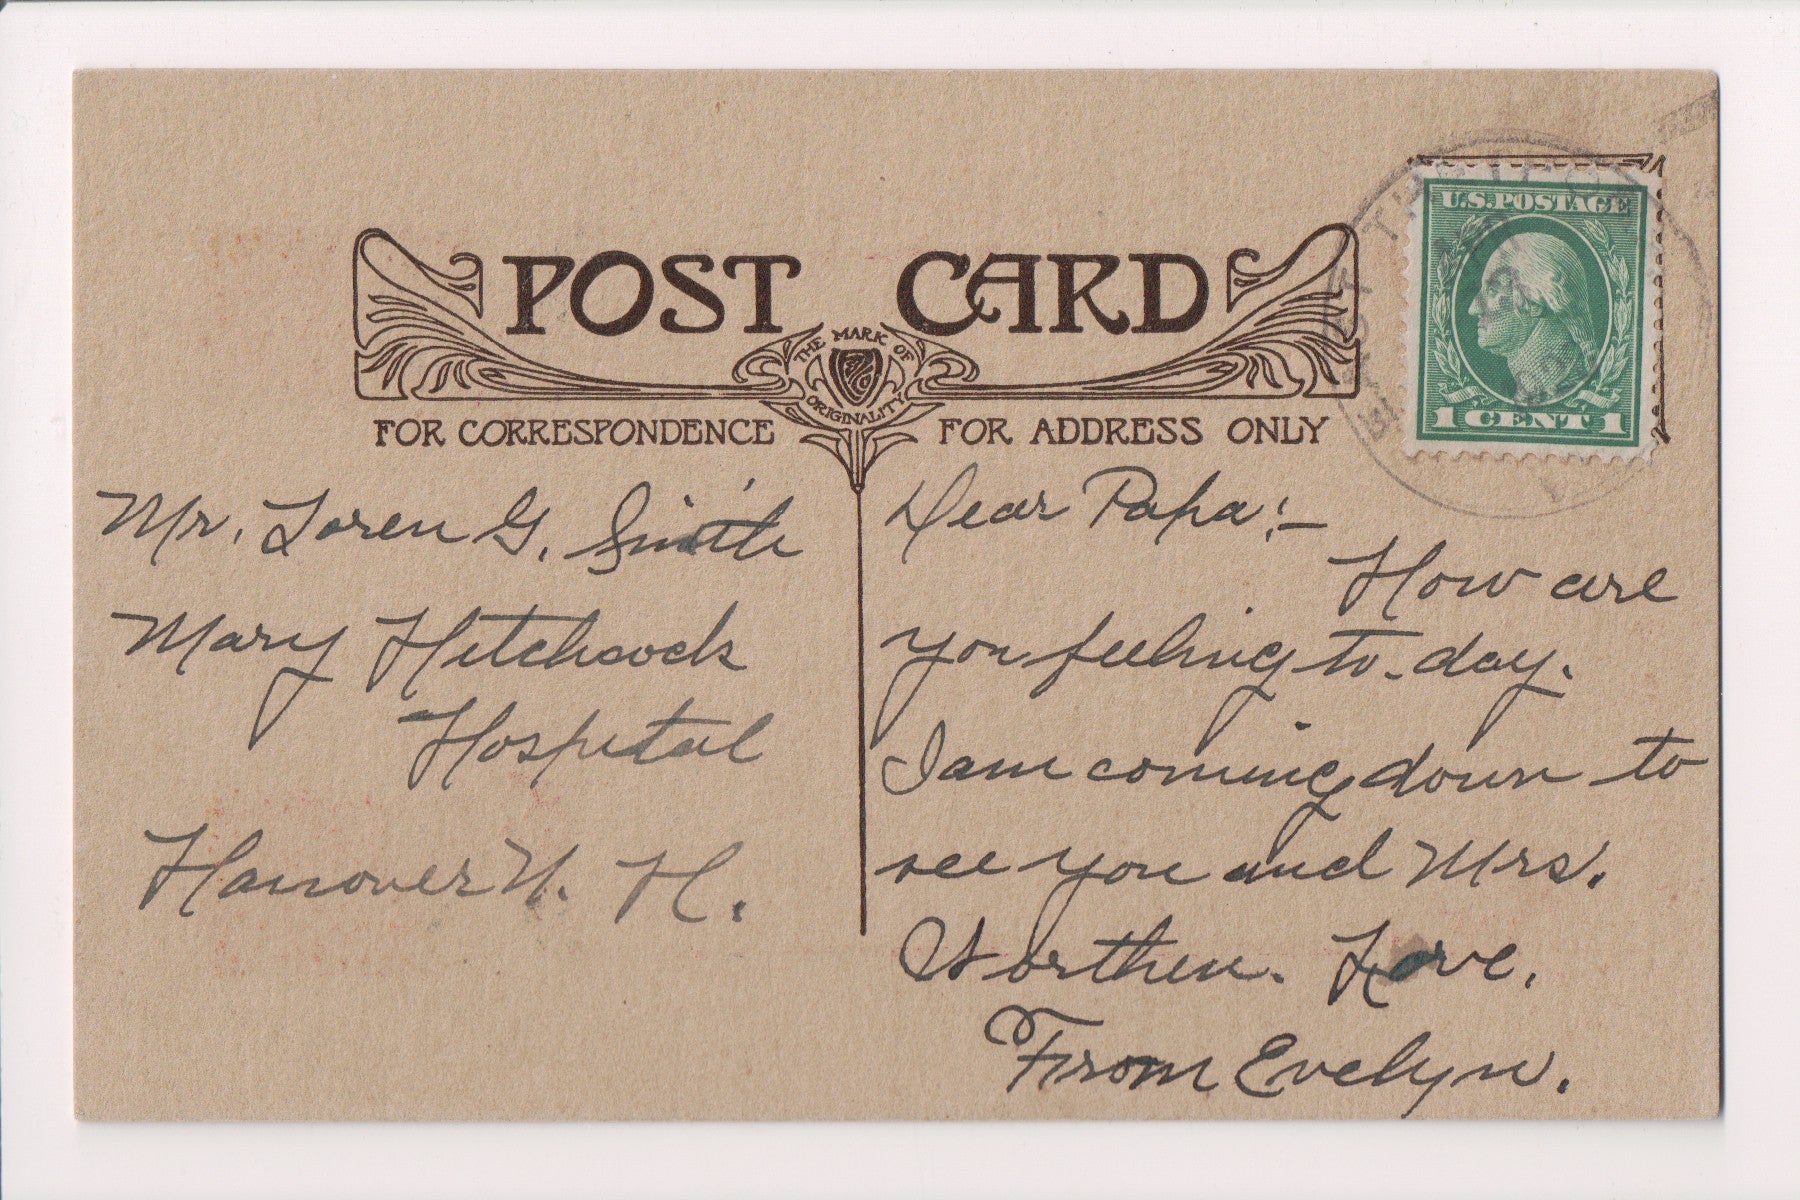 POST CARD
THE MARK OF
ORIGINALITY
FOR CORRESPONDENCE
FOR ADDRESS ONLY
U.S. POSTAGE
1 CENT 1
Mr. Loren G. Smith
Mary Hitchcock
Hospital
Hanover N. H.
Dear Papa:-
How are
you feeling to-day.
I am coming down to
see you and Mrs.
Worthen. Love,
From Evelyn.